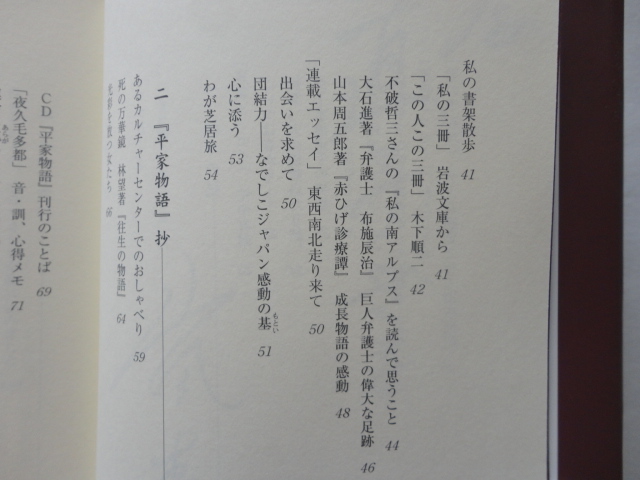 私の書架散歩 41
「私の三冊」 岩波文庫から 41
「この人この三冊」 木下順二 42
不破哲三さんの『私の南アルプス』を読んで思うこと 44
大石進著『弁護士 布施辰治』 巨人弁護士の偉大な足跡 46
山本周五郎著『赤ひげ診療譚』 成長物語の感動 48
「連載エッセイ」 東西南北走り来て 50
出会いを求めて 50
団結力――なでしこジャパン感動の基 51
もとい
心に添う 53
わが芝居旅 54
二 『平家物語』抄
あるカルチャーセンターでのおしゃべり 59
死の万華鏡 林望著『往生の物語』 64
66
CD『平家物語』刊行のことば 69
「夜久毛多都」 音・訓、心得メモ 71